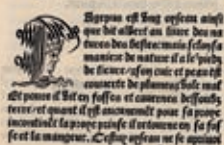 Agepus est Vng opseau ainsi
que dit albert au liure des na
tures des bestes: mais selon sa
maniere de nature il a le pied
de lieure / son cuir et peau est
couuerte de plumes: sale mal
Et ponnt il Vit en fosses et cauernes dessoubz
terre / et quant il est aucunement pour sa proye
incontinēt la proye prinse il retourne en sa fos
se et la mangeue. Cestuy opseau ne se apriuoi